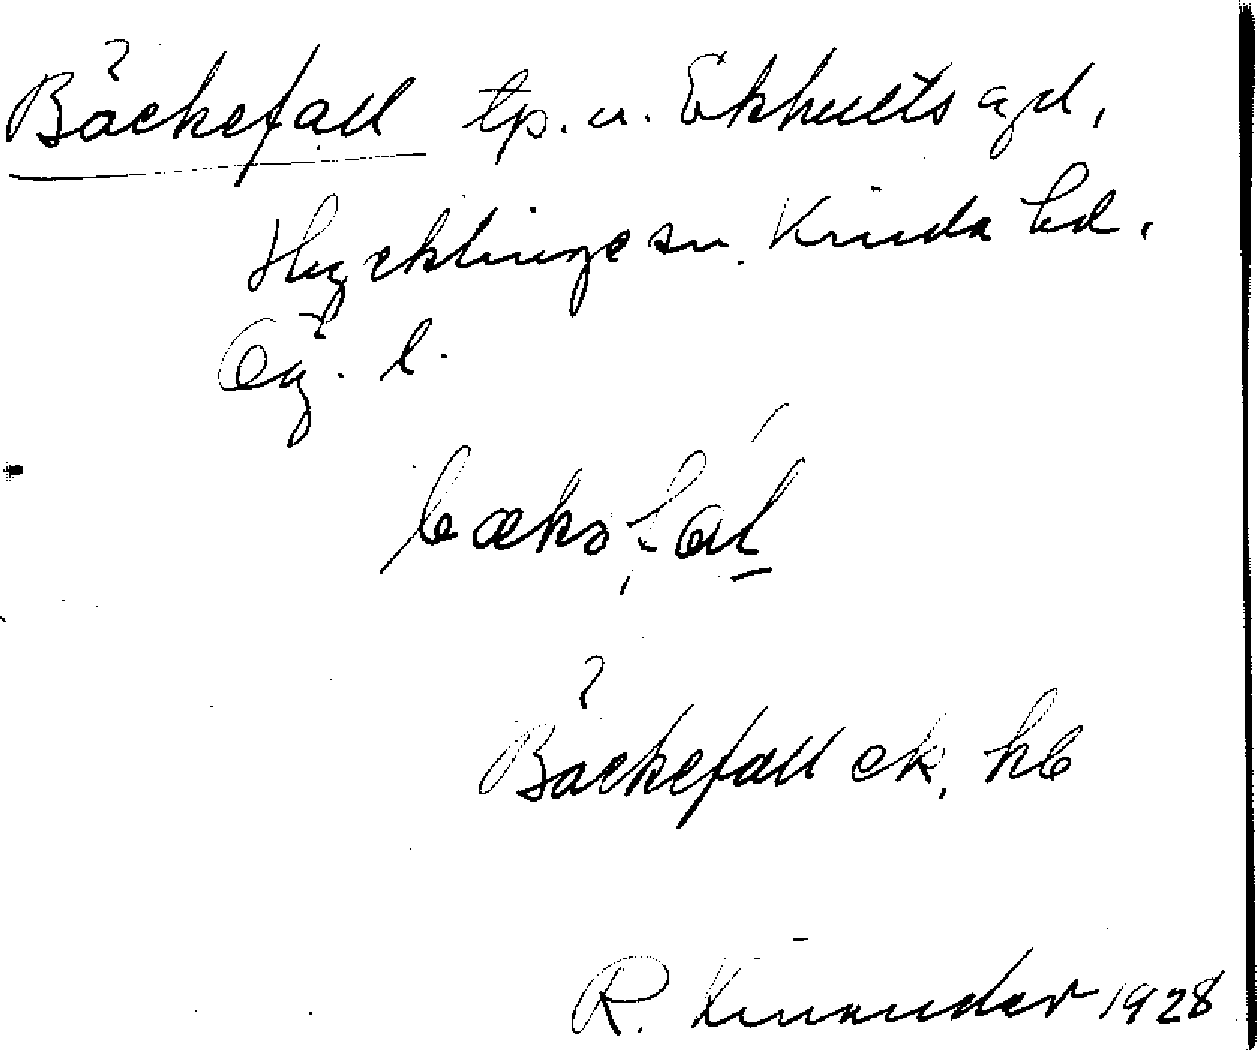 Bäckefall tp. u. Ekhults egd,
Hycklinge sn. Kinda hd.
Ög. l.
bækəfal
Bäckefall ek, hb
R. Kinander 1928